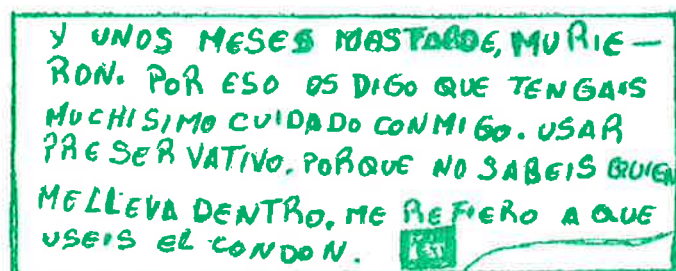 Y UNOS MESES MASTARDE, MURIE-
RON. POR ESO OS DIGO QUE TENGAIS
MUCHISIMO CUIDADO CONMIGO. USAR
PRESERVATIVO. PORQUE NO SABEIS QUIEN
MELLEVA DENTRO, ME REFIERO A QUE
USEIS EL CONDON.